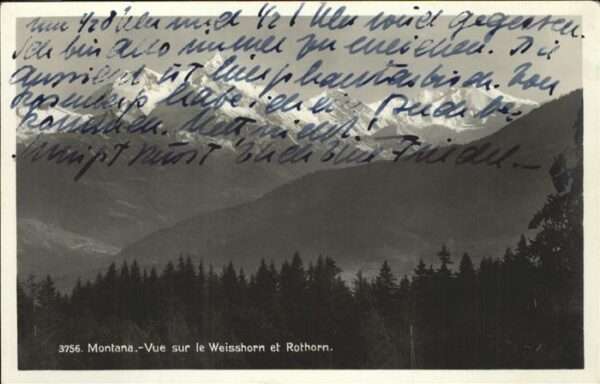 um 1/2 8 Uhr und 1/2 1 Uhr wird gegessen.
Ich bin also immer zu erreichen. Die
Aussicht ist hier phantastisch. Von
habe ich ein be-
kommen. Nett nicht!
Grüßt Euch Friedel.—
3756. Montana.-Vue sur le Weisshorn et Rothorn.